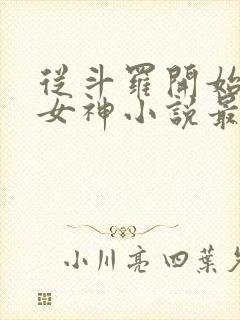 從斗羅開始
女神小說最
小川亮四葉